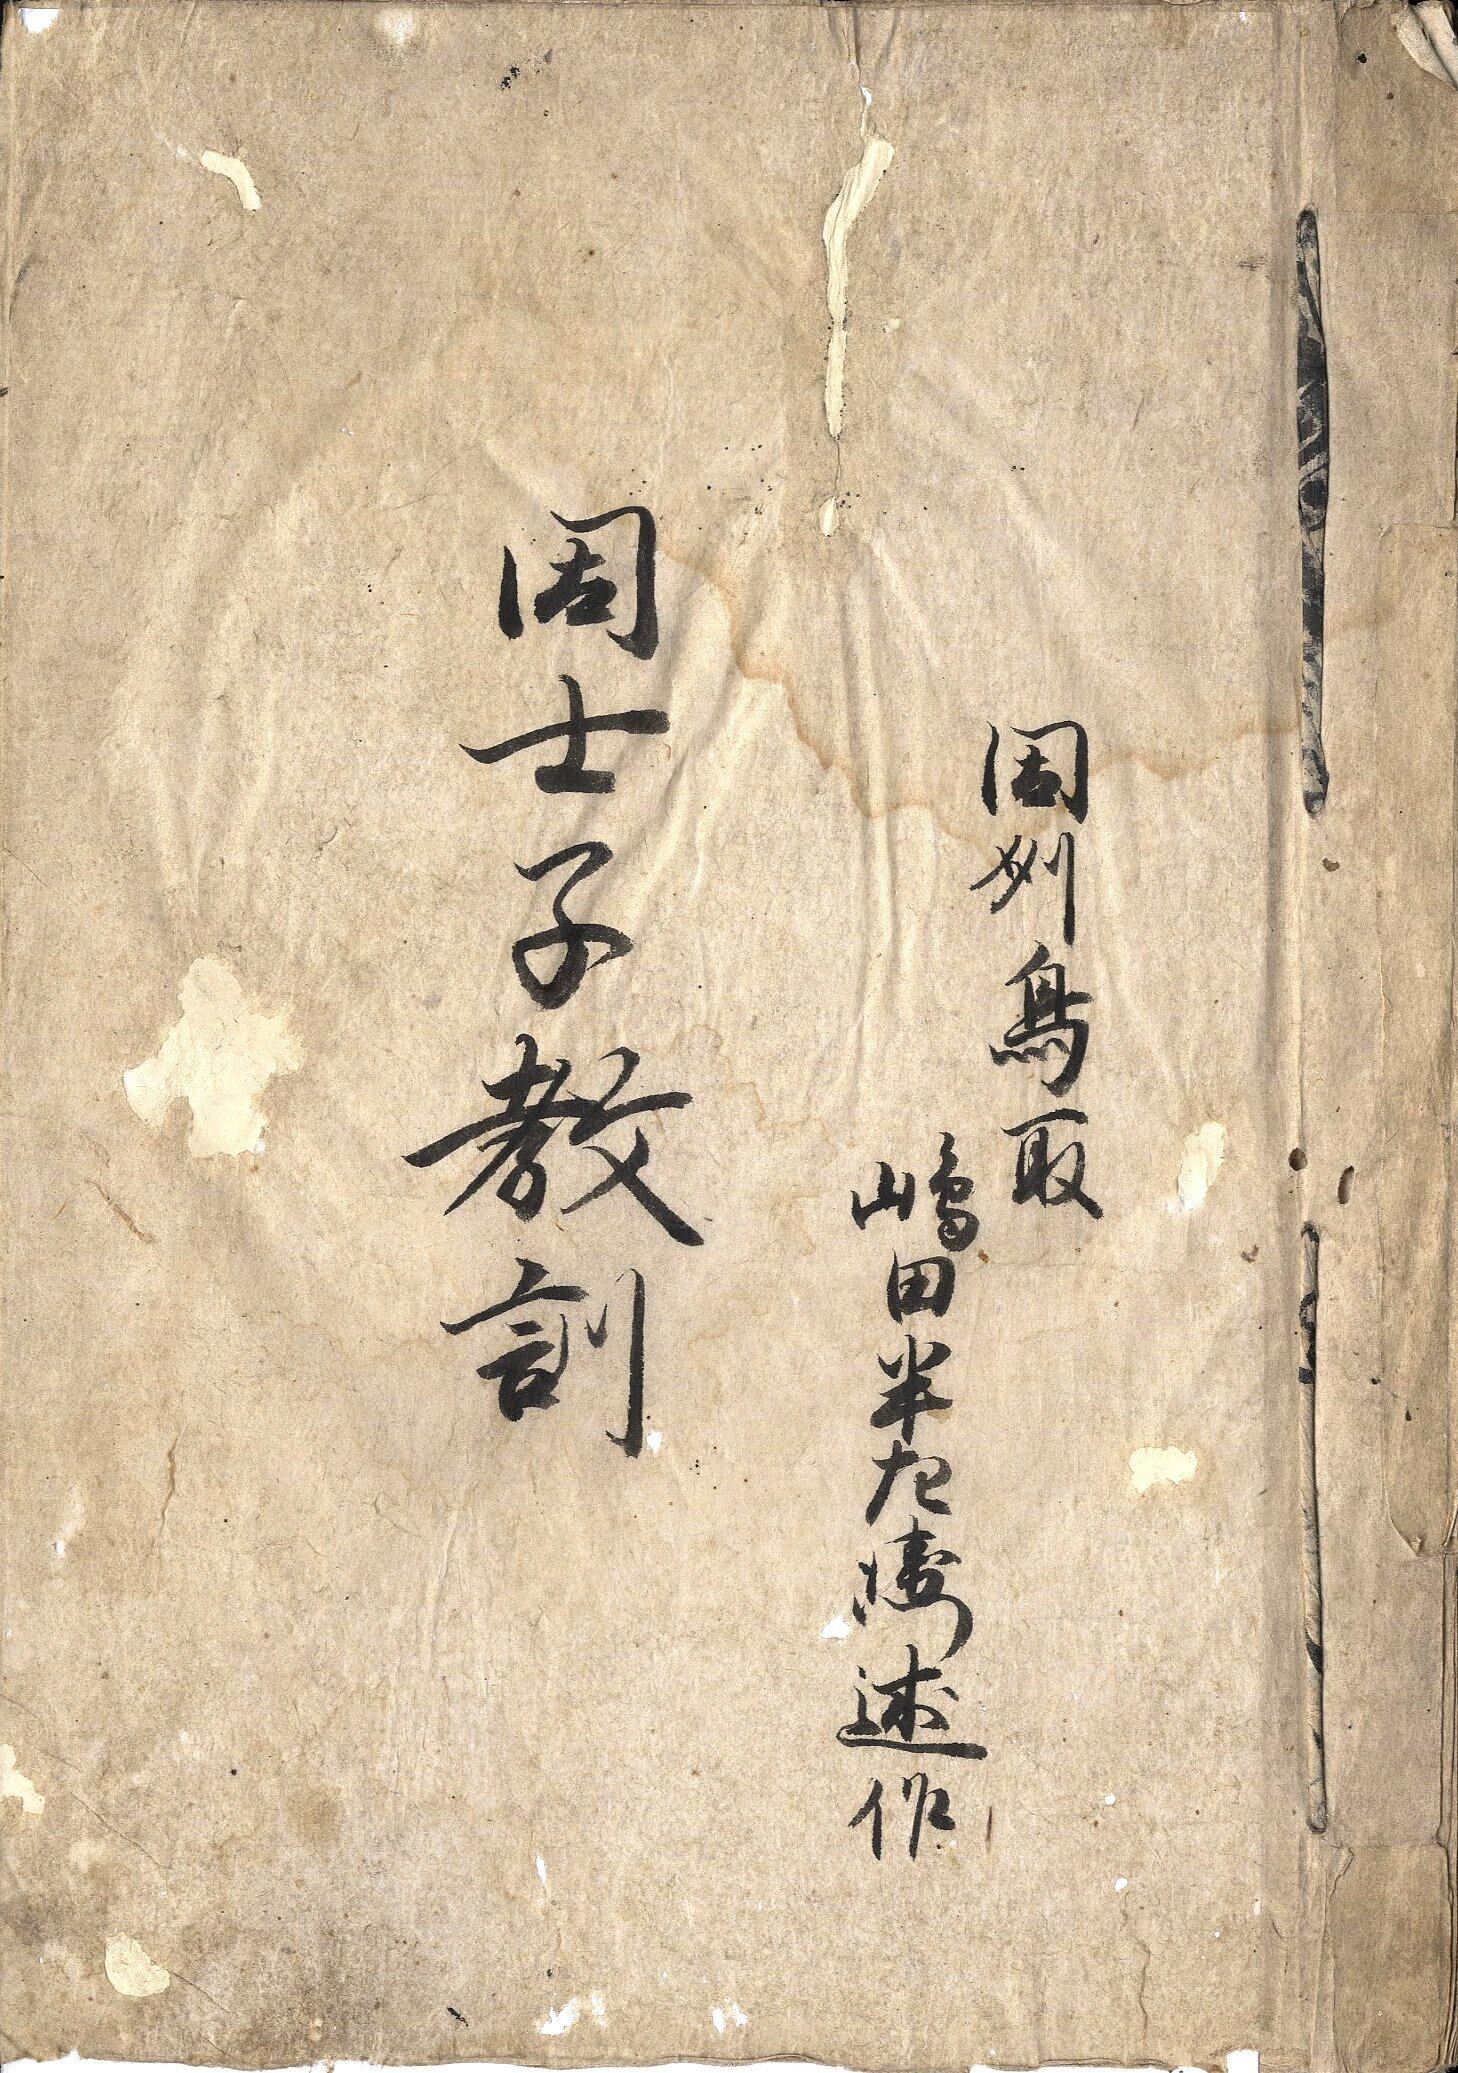 因州鳥取
嶋田半左衛述作
因士子教訓